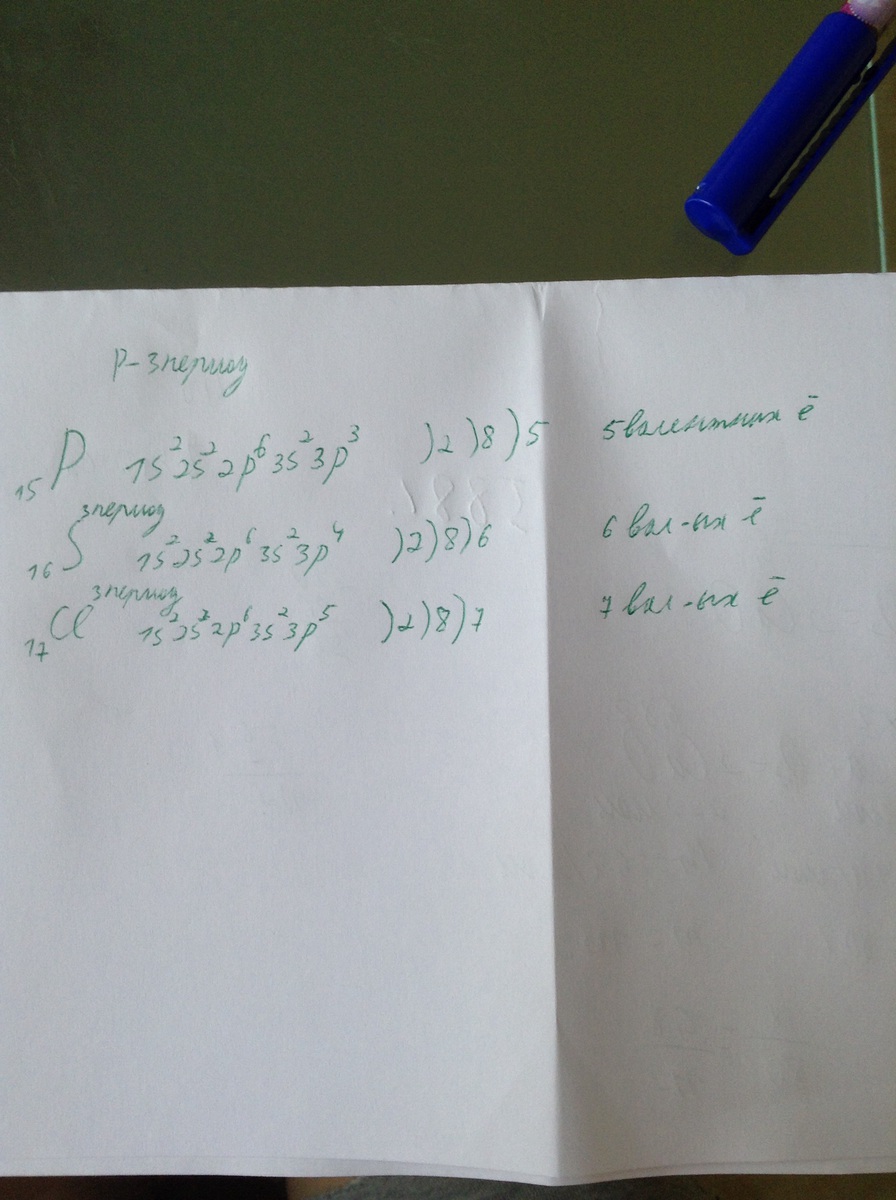 P-3 период
₁₅P 1s²2s²2p⁶3s²3p³ )2)8)5 5 валентных ē
3 период
₁₆S 1s²2s²2p⁶3s²3p⁴ )2)8)6 6 вал-ых ē
3 период
₁₇Cl 1s²2s²2p⁶3s²3p⁵ )2)8)7 7 вал-ых ē